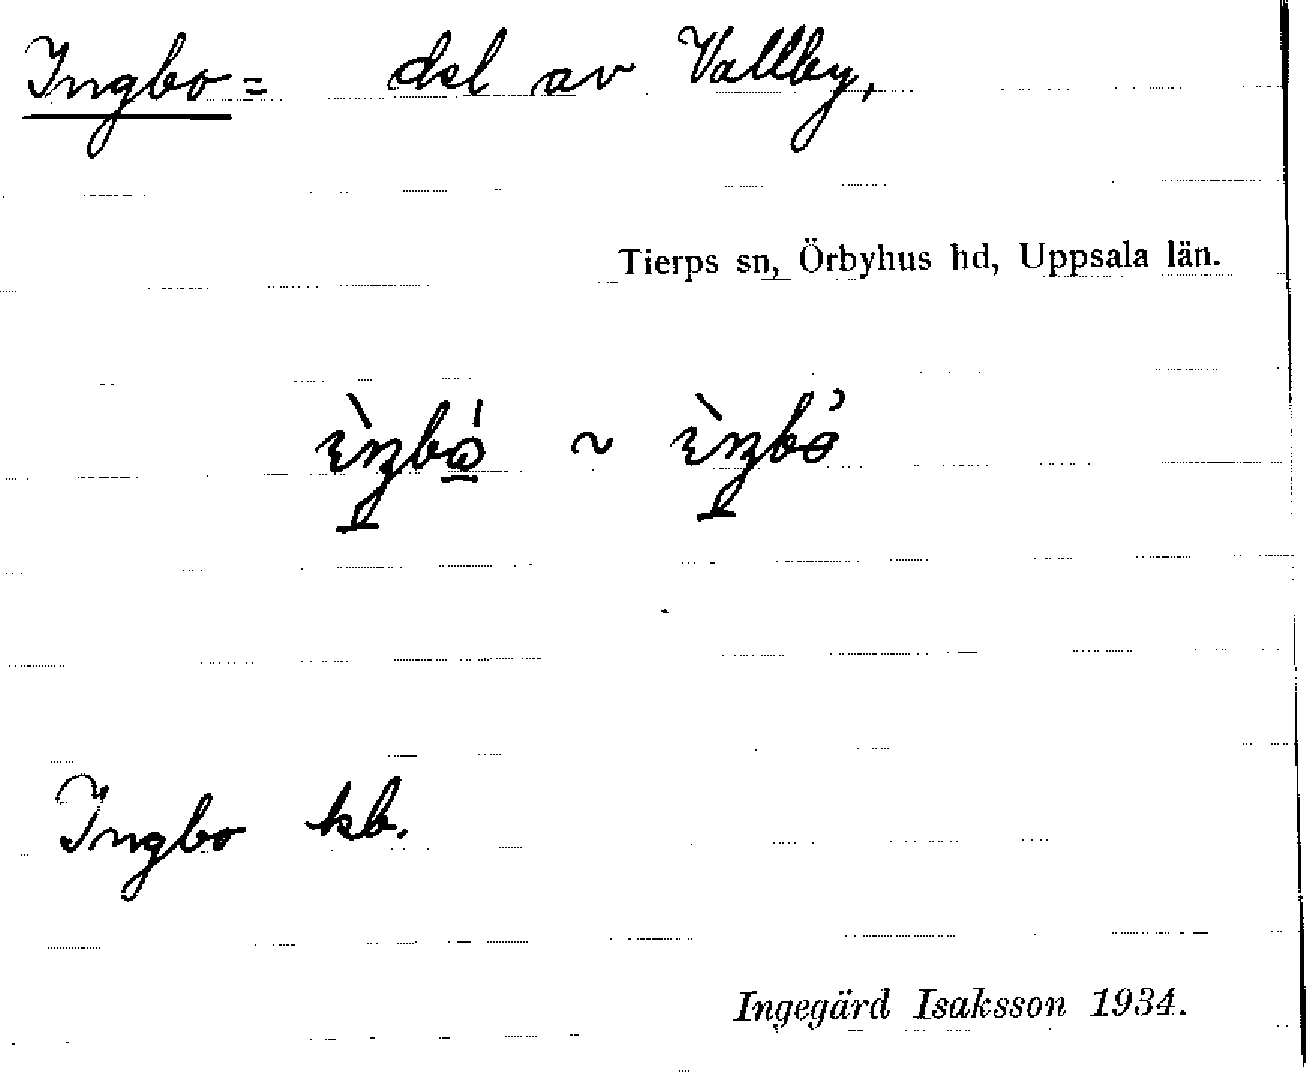 Ingbo = del av Vallby,
Tierps sn, Örbyhus hd, Uppsala län.
Ingbo kb.
Ingegärd Isaksson 1934.